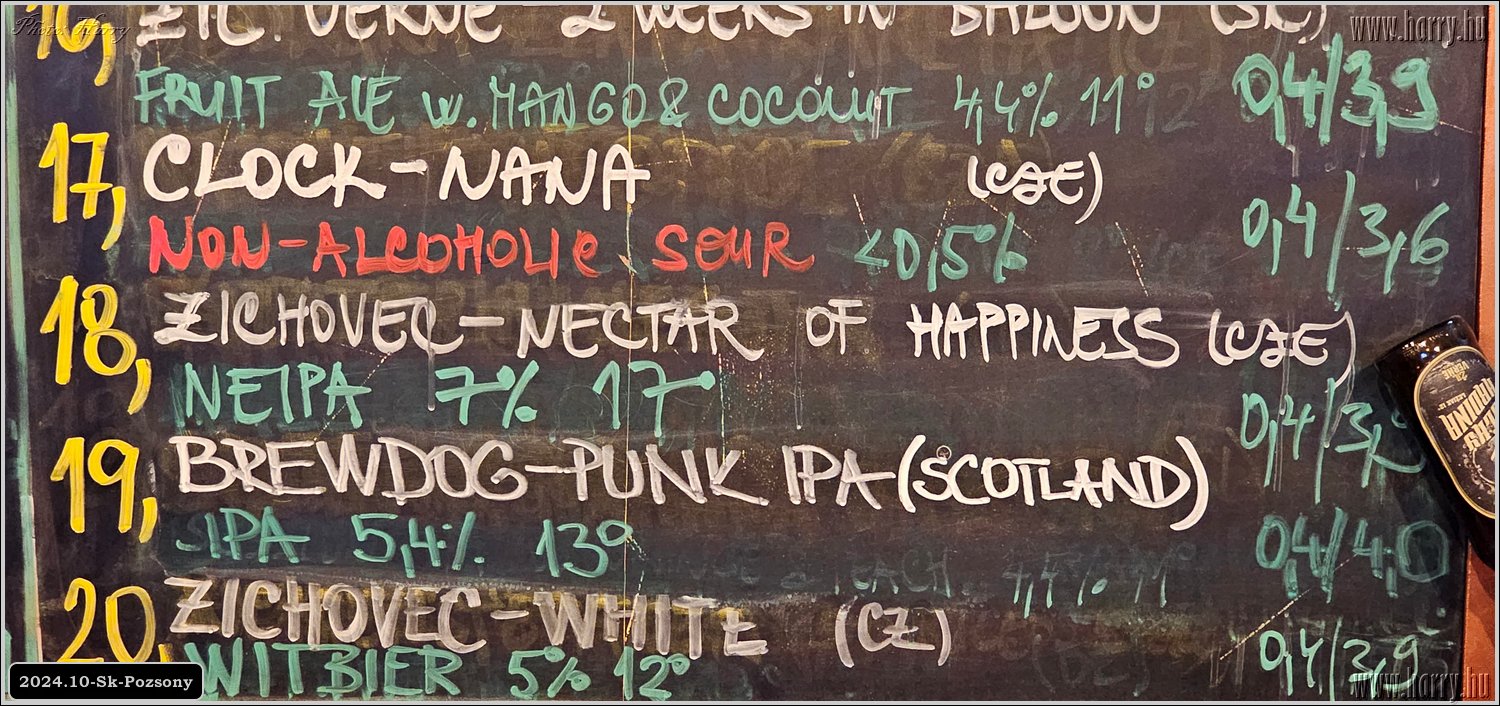 Photo: Harry
www.harry.hu
16, ZIC. VERNE 2 WEEKS IN BALOON (SK)
FRUIT ALE W. MANGO & COCONUT 4,4% 11° 0,4/3,9
17, CLOCK-NANA (CZE)
NON-ALCOHOLIC SOUR <0,5% 0,4/3,6
18, ZICHOVEC-NECTAR OF HAPPINESS (CZE)
NEIPA 7% 17° 0,4/3,
19, BREWDOG-PUNK IPA-(SCOTLAND)
IPA 5,4% 13° 0,4/4,0
20, ZICHOVEC-WHITE (CZ)
WITBIER 5% 12° 0,4/3,9
2024.10-Sk-Pozsony
www.harry.hu